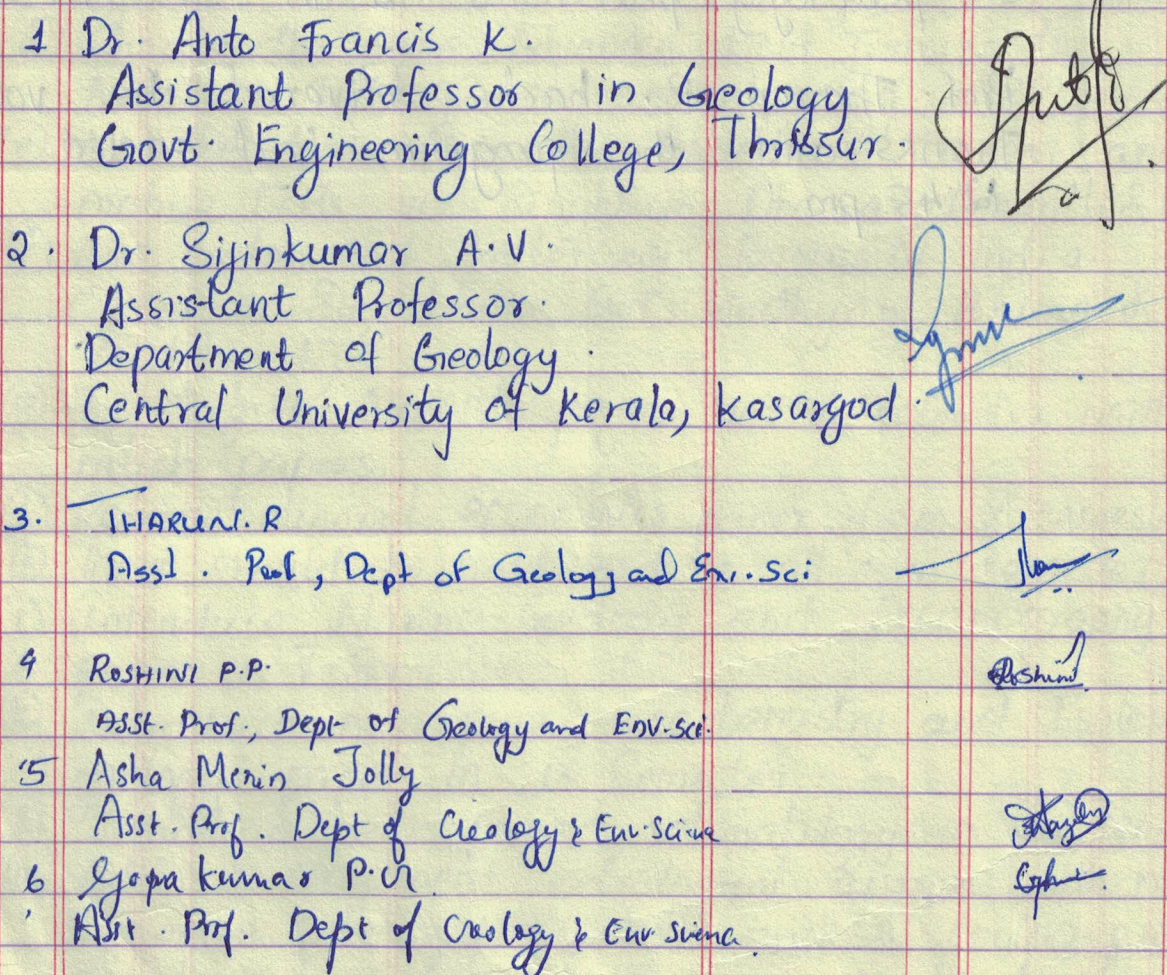 1 Dr. Anto Francis K.
Assistant Professor in Geology
Govt. Engineering College, Thrissur.
2. Dr. Sijinkumar A.V.
Assistant Professor.
Department of Geology.
Central University of Kerala, Kasargod.
3. THARUNI. R
Asst. Prof, Dept of Geology and Env. Sci
4 ROSHINI P.P.
Asst. Prof., Dept of Geology and Env. Sci.
Roshini
5 Asha Merin Jolly
Asst. Prof. Dept of Geology & Env. Science
6 Gopakumar P.
Asst. Prof. Dept of Geology & Env Science.